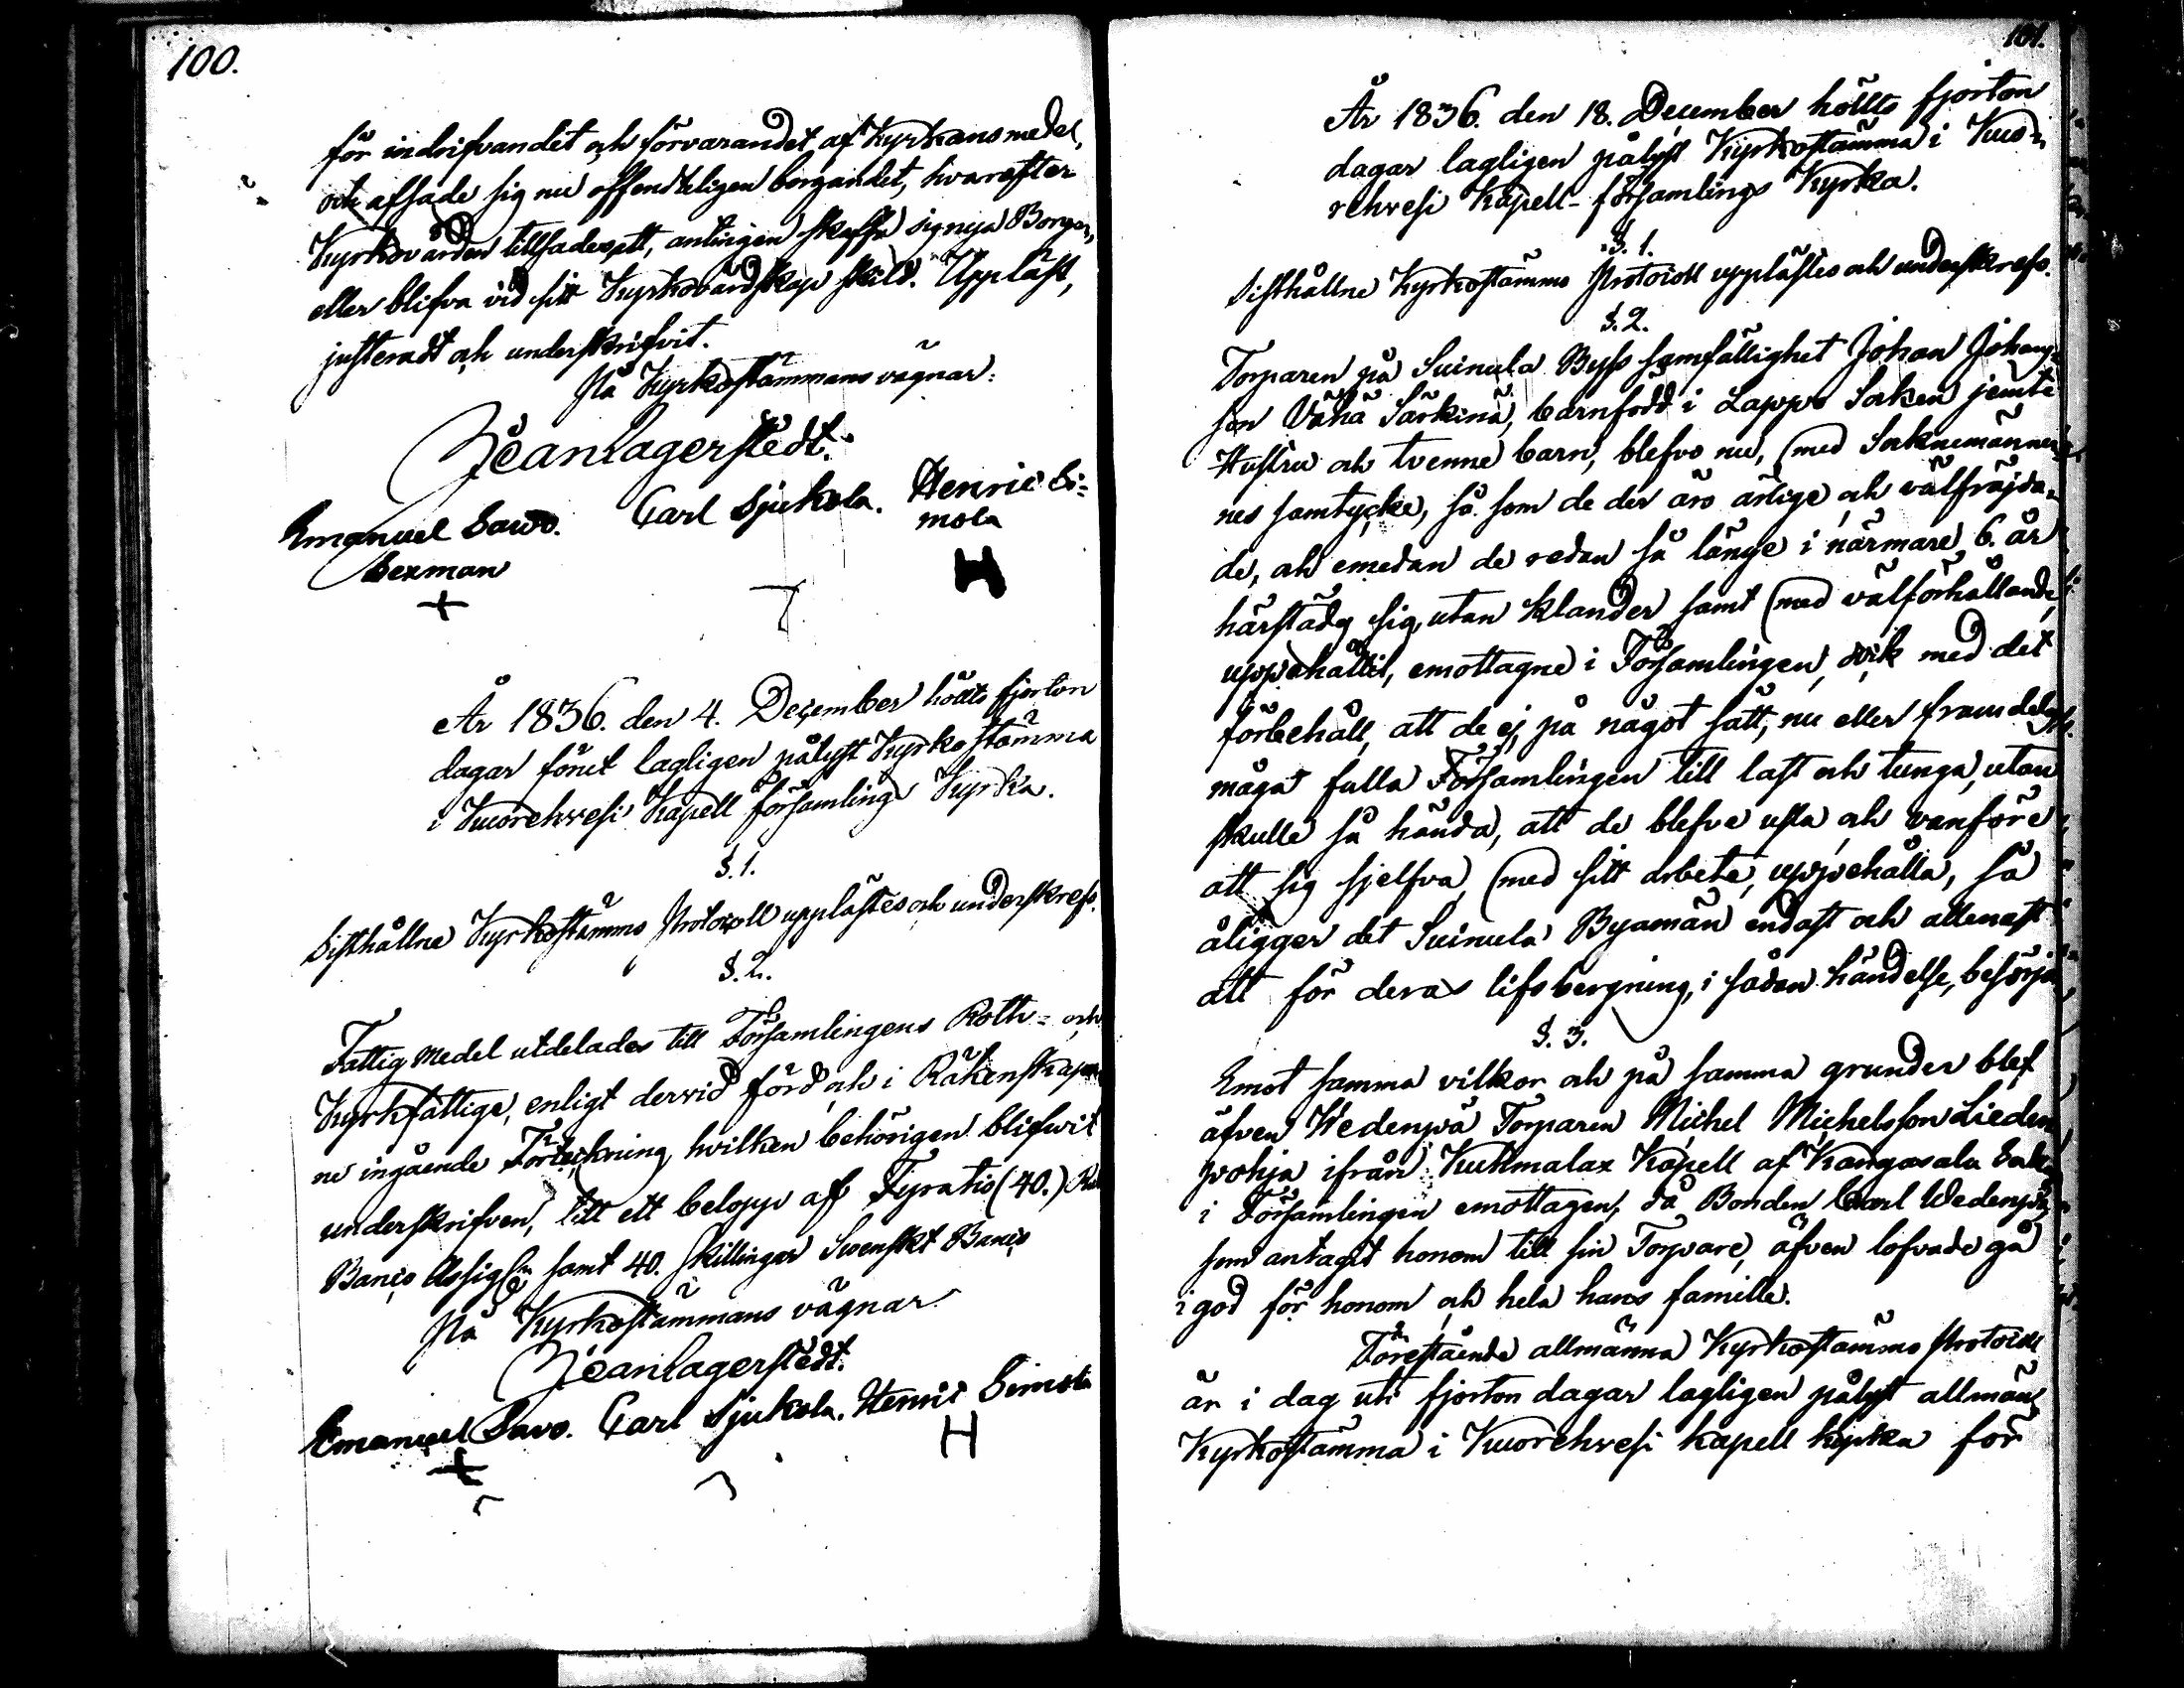 100.
för indrifvandet och förvarandet af Kyrkans medel,
och afsade sig nu offendteligen borgandet, hvarefter
Kyrkovärden tillsades, att, antingen skaffa sig nya Borgen,
eller blifva vid sitt Kyrkovärdskap skild. Uppläst,
justeradt och underskrifvit.
På Kyrkostämmans vägnar:
Zeanlagerstedt.
Emanuel Sawo. Carl Sjukola. Henric Si=
Sexman mola
+ H
År 1836. den 4. December hölts fjorton
dagar förut lagligen pålyst Kyrkostämma
i Kuorehvesi Kapell församlings Kyrka.
§. 1.
Sisthållne Kyrkostämmo Protocoll upplästes och underskrefs.
§. 2.
Fattig medel utdelades till Församlingens Rothe= och
Kyrkfattige, enligt dervid förd och i Räkenskaper
ne ingående Förteckning, hvilken behörigen blifvit
underskrifven, till ett belopp af Fyratio (40.) Rub
Banco Assign. samt 40. skillingar Svenskt Banco
På Kyrkostämmans vägnar
Zeanlagerstedt.
Emanuel Savo. Carl Sjukola. Henric Simola
+ H
101.
År 1836. den 18. December hölts fjorton
dagar lagligen pålyst Kyrkostämma i Kuo=
rehvesi Kapell-församlings Kyrka.
§. 1.
Sisthållne Kyrkostämmo Protocoll upplästes och underskrefs.
§. 2.
Torparen på Suinula Byss samfällighet Johan Johans=
son Vähä Särkinä, barnfödd i Lappo Socken jemte
Hustru och tvenne barn, blefvo nu, med Sockenmänner
nes samtycke, så som de der äro ärlige och välfräjda=
de, och emedan de redan så länge i närmare 6. år
härstädes sig utan klander samt med välförhållande
uppehållit, emottagne i Församlingen, dock med det
förbehåll, att de ej på något sätt, nu eller framdeles
måga falla Församlingen till last och tunga, utan
skulle så hända, att de blefve usla och vanföre
att sig sjelfva med sitt arbete uppehålla, så
åligger det Suinula Byamän endast och allenast
att för deras lifsbergning, i sådan händelse, besörja
§. 3.
Emot samma vilkor och på samma grunder blef
äfven Wedenpää Torparen Michel Michelsson Lieden
pohja ifrån Kuhmalax Kapell af Kangasala Sock
i Församlingen emottagen, då Bonden Carl Wedenpää,
som antagit honom till sin Torpare, äfven lofvade gå
i god för honom och hela hans famille.
Förestående allmänna Kyrkostämmo Protocoll
är i dag uti fjorton dagar lagligen pålyst allmän
Kyrkostämma i Kuorehvesi Kapell kyrka för